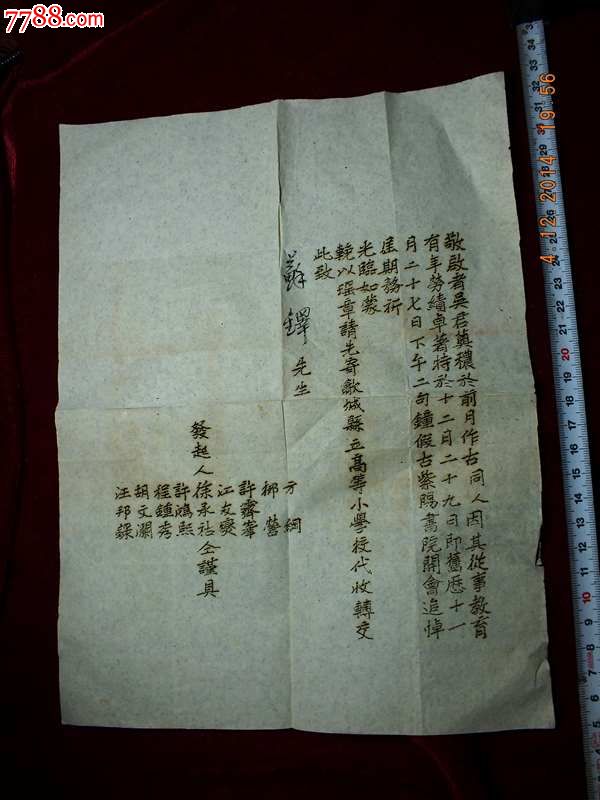 7788.com
中国收藏热线
4.12.2014 19:56
敬啟者吳君蓂穠於前月作古同人因其從事教育
有年勞績卓著特於十二月二十九日即舊歷十一
月二十七日下午二句鐘假古紫陽書院開會追悼
屆期務祈
光臨如蒙
輓以瑤章請先寄歙城縣立高等小學校代收轉交
此致
蘇鐸先生
發起人
方綱
許霽峯
江友燮
徐永祜
許鴻熙
程鍾秀
胡文瀾
汪邦
仝謹具